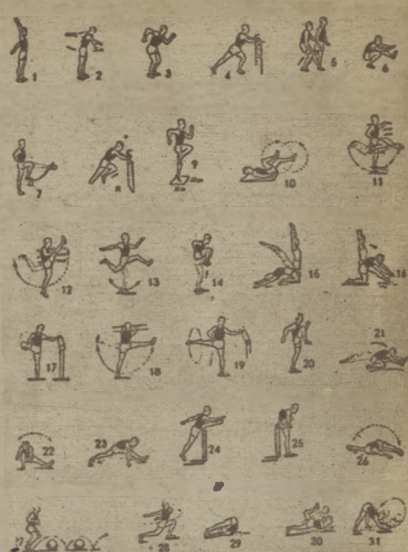 1 2 3 4 5 6
7 8 9 10 11
12 13 14 15 16
17 18 19 20 21
22 23 24 25 26
28 29 30 31